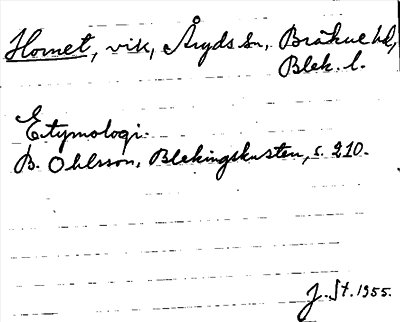 Homet, vik, Åryds sn, Bräkne hd,
Blek. l.
Etymologi.
B. Ohlsson, Blekingskusten, s. 210.
J. St. 1955.